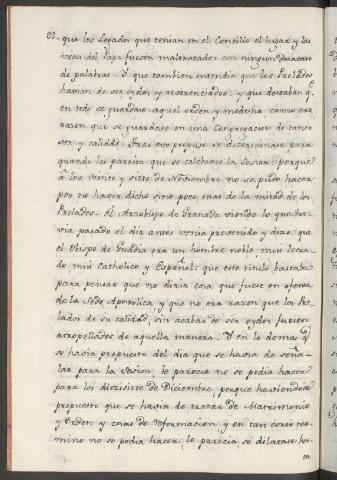 82. que los Legados que tenian en el Concilio el lugar y las
veces del Papa fuesen maltratados con ningun desacato
de palabras. Y que tambien entendia que los Prelados
havian de ser oydos y reverenciados: y que deseaban q.
en todo se guardase aquel orden y modestia como era
razon que se guardase en una Congregacion de tanto
ser y calidad. A este proposito se determinase para
quando les parecia que se celebrase la Sesion: porque
a los veinte y siete de Noviembre no se pudo hacer
por no haver dicho sino poco mas de la mitad de los
Prelados. el Arzobispo de Granada viendo lo que ha-
via pasado el dia antes venia prevenido y dixo: que
el Obispo de Guadix era un hombre noble, mui letra-
do mui Catholico y Español: que este titulo bastaba
para pensar que no diria cosa, que fuese en ofensa
de la Sede Apostolica, y que no era razon que los Pre-
lados de su calidad, sin acabar de ser oydos fuesen
atropellados de aquella manera. Y en lo demas q.
se havia propuesto del dia que se havia de seña-
lar para la Sesion, le parecia no se podia hacer
para los diezisiete de Diciembre, porque haviendose
propuesto que se havia de tratar de Matrimonio
y Orden y cosas de Reformacion, y en tan corto ter-
mino no se podia hacer, le parecia se dilatase has-
ta